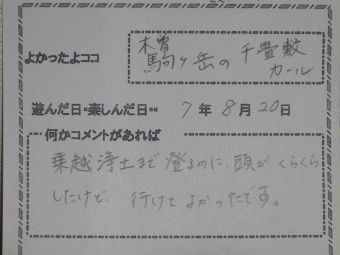 よかったよココ
木曽
駒ヶ岳の千畳敷
カール
遊んだ日・楽しんだ日・・ 7年 8月 20日
何かコメントがあれば
乗越浄土まで登るのに、頭がくらくら
したけど 行けてよかったです。